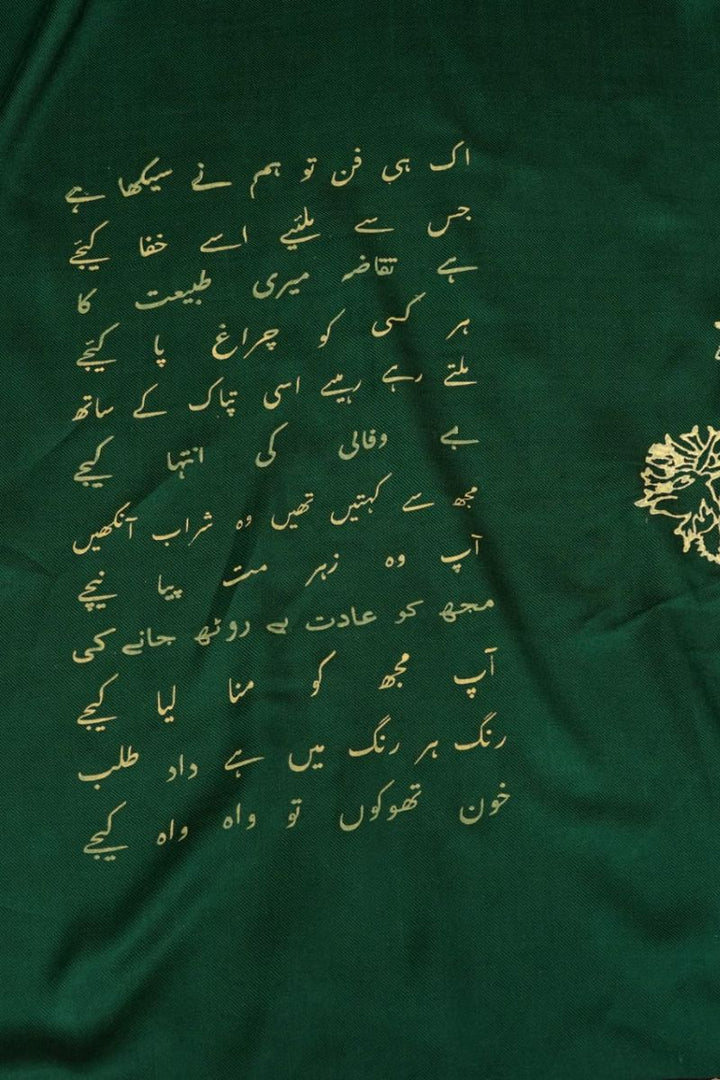 اک ہی فن تو ہم نے سیکھا ہے
جس سے ملئیے اسے خفا کیجے
ہے تقاضہ میری طبیعت کا
ہر کسی کو چراغ پا کیجے
ملتے رہے رہیے اسی تپاک کے ساتھ
بے وفالی کی انتہا کیجے
مجھ سے کہتیں تھیں وہ شراب آنکھیں
آپ وہ زہر مت پیا نیچے
مجھ کو عادت ہے روٹھ جانے کی
آپ مجھ کو منا لیا کیجے
رنگ ہر رنگ میں ہے داد طلب
خون تھوکوں تو واہ واہ کیجے